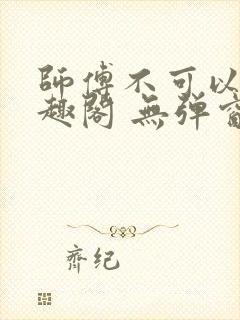 師傅不可以
趣閣 無彈窗
齊紀